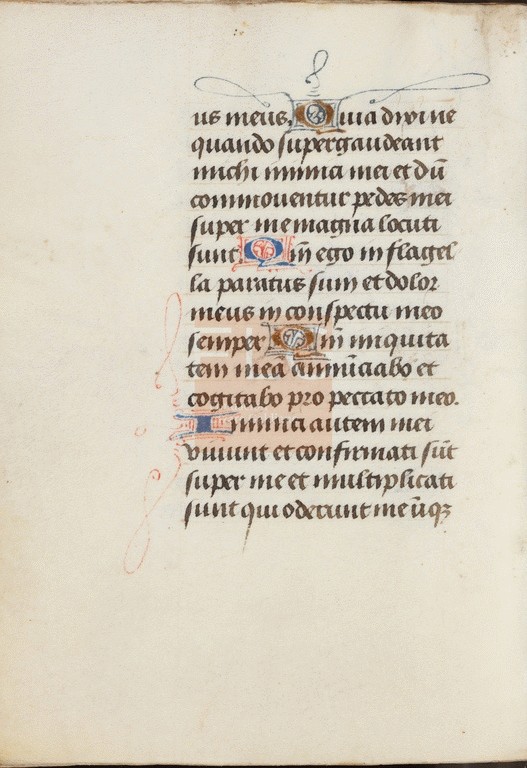 us meus. Quia dixi ne
quando supergaudeant
michi inimici mei et dū
commoventur pedes mei
super me magna locuti
sunt. Qm̄ ego in flagel
la paratus sum et dolor
meus in conspectu meo
semper Qm̄ iniquita
tem meā annūciabo et
cogitabo pro peccato meo.
Inimici autem mei
vivunt et confirmati sūt
super me et multiplicati
sunt qui oderunt me iniq̄